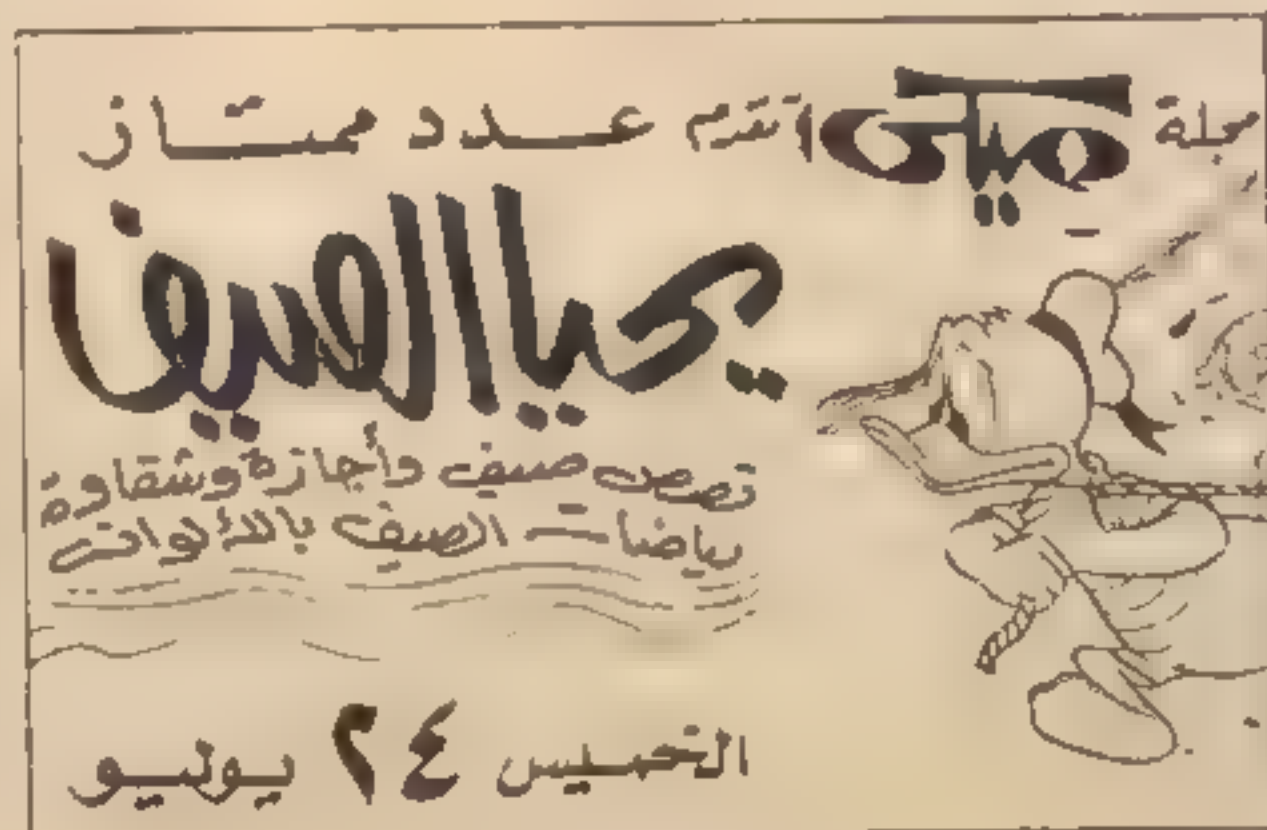 مجلة ميكى تقدم عدد ممتاز
يحيا الصيف
قصص صيف وأجازة وشقاوة
رياضات الصيف بالألوان
الخميس ٢٤ يوليو